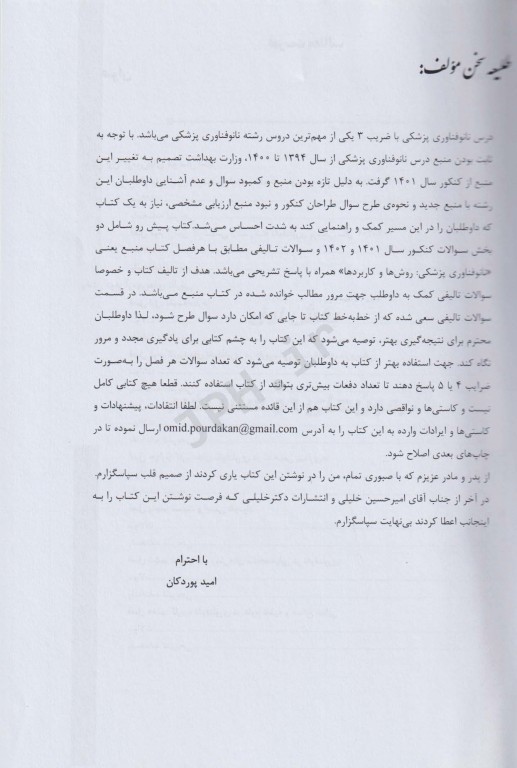 طلیعه سخن مؤلف:
درس نانوفناوری پزشکی با ضریب ۳ یکی از مهم‌ترین دروس رشته نانوفناوری پزشکی می‌باشد. با توجه به
ثابت بودن منبع درس نانوفناوری پزشکی از سال ۱۳۹۴ تا ۱۴۰۰، وزارت بهداشت تصمیم به تغییر این
منبع از کنکور سال ۱۴۰۱ گرفت. به دلیل تازه بودن منبع و کمبود سوال و عدم آشنایی داوطلبان این
رشته با منبع جدید و نحوه‌ی طرح سوال طراحان کنکور و نبود منبع ارزیابی مشخصی، نیاز به یک کتاب
که داوطلبان را در این مسیر کمک و راهنمایی کند به شدت احساس می‌شد.کتاب پیش رو شامل دو
بخش سوالات کنکور سال ۱۴۰۱ و ۱۴۰۲ و سوالات تالیفی مطابق با هرفصل کتاب منبع یعنی
«نانوفناوری پزشکی: روش‌ها و کاربردها» همراه با پاسخ تشریحی می‌باشد. هدف از تالیف کتاب و خصوصا
سوالات تالیفی کمک به داوطلب جهت مرور مطالب خوانده شده در کتاب منبع می‌باشد. در قسمت
سوالات تالیفی سعی شده که از خط‌به‌خط کتاب تا جایی که امکان دارد سوال طرح شود، لذا داوطلبان
محترم برای نتیجه‌گیری بهتر، توصیه می‌شود که این کتاب را به چشم کتابی برای یادگیری مجدد و مرور
نگاه کند. جهت استفاده بهتر از کتاب به داوطلبان توصیه می‌شود که تعداد سوالات هر فصل را به‌صورت
ضرایب ۴ یا ۵ پاسخ دهند تا تعداد دفعات بیش‌تری بتوانند از کتاب استفاده کنند. قطعا هیچ کتابی کامل
نیست و کاستی‌ها و نواقصی دارد و این کتاب هم از این قائده مستثنی نیست. لطفا انتقادات، پیشنهادات و
کاستی‌ها و ایرادات وارده به این کتاب را به آدرس omid.pourdakan@gmail.com ارسال نموده تا در
چاپ‌های بعدی اصلاح شود.
از پدر و مادر عزیزم که با صبوری تمام، من را در نوشتن این کتاب یاری کردند از صمیم قلب سپاسگزارم.
در آخر از جناب آقای امیرحسین خلیلی و انتشارات دکترخلیلی که فرصت نوشتن این کتاب را به
اینجانب اعطا کردند بی‌نهایت سپاسگزارم.
با احترام
امید پوردکان
JPH.ir